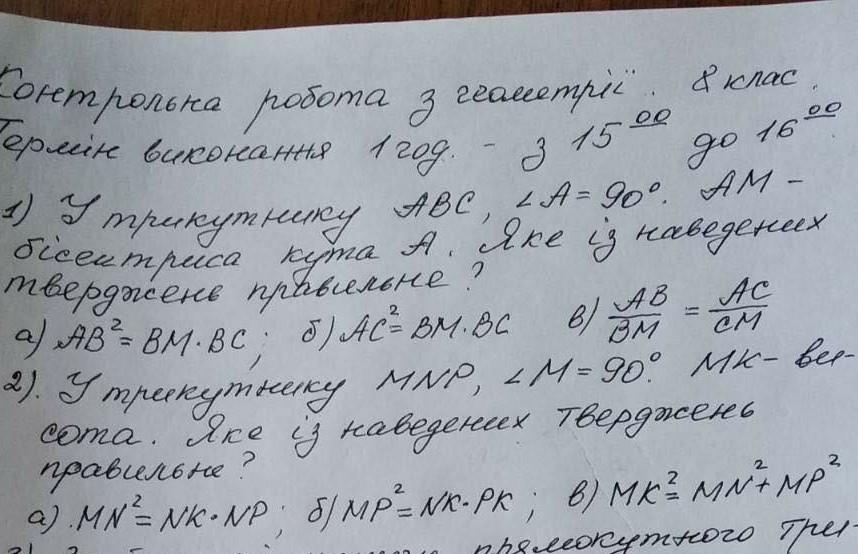 Контрольна робота з геометрії. 8 клас.
Термін виконання 1 год. - з 15⁰⁰ до 16⁰⁰.
1) У трикутнику ABC, ∠A = 90°. AM -
бісектриса кута A. Яке із наведених
тверджень правильне?
а) AB² = BM·BC; б) AC² = BM·BC в) AB/BM = AC/CM
2). У трикутнику MNP, ∠M = 90°. MK - ви-
сота. Яке із наведених тверджень
правильне?
а) MN² = NK·NP; б) MP² = NK·PK; в) MK² = MN² + MP²
прямокутного три-